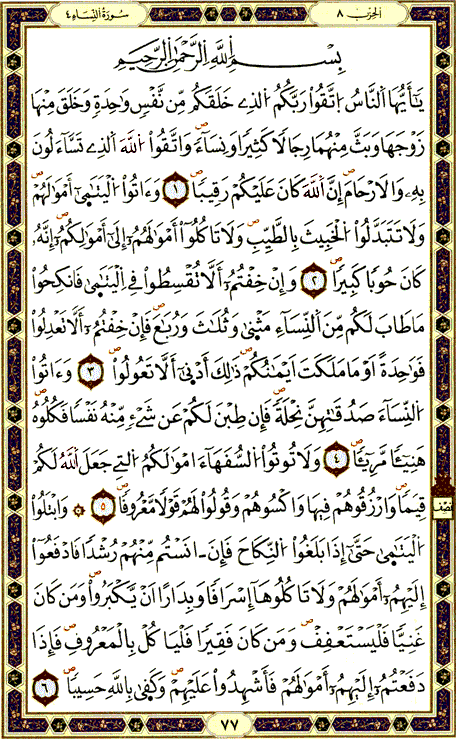 الحِزْب ٨
سُورَةُ النِّسَاءِ ٤
بِسْمِ اللَّهِ الرَّحْمَٰنِ الرَّحِيمِ
يَٰٓأَيُّهَا اَ۬لنَّاسُ اُ۪تَّقُواْ رَبَّكُمُ اُ۬لذِے خَلَقَكُم مِّن نَّفْسٖ وَٰحِدَةٖ وَخَلَقَ مِنْهَا
زَوْجَهَا وَبَثَّ مِنْهُمَا رِجَالاٗ كَثِيراٗ وَنِسَآءٗۖ وَاتَّقُواْ اُ۬للَّهَ اَ۬لذِے تَسَّآءَلُونَ
بِهِۦ وَالَارْحَامَۖ إِنَّ اَ۬للَّهَ كَانَ عَلَيْكُمْ رَقِيباٗۖ ١ وَءَاتُواْ اُ۬لْيَتَٰم۪ىٰٓ أَمْوَٰلَهُمْ
وَلَا تَتَبَدَّلُواْ اُ۬لْخَبِيثَ بِالطَّيِّبِۖ وَلَا تَاكُلُوٓاْ أَمْوَٰلَهُمُۥٓ إِلَىٰٓ أَمْوَٰلِكُمُۥٓۖ إِنَّهُۥ
كَانَ حُوباٗ كَبِيراٗۖ ٢ وَإِنْ خِفْتُمُۥٓ أَلَّا تُقْسِطُواْ فِے اِ۬لْيَتَٰم۪ىٰ فَانكِحُواْ
مَا طَابَ لَكُم مِّنَ اَ۬لنِّسَآءِ مَثْن۪ىٰ وَثُلَٰثَ وَرُبَٰعَۖ فَإِنْ خِفْتُمُۥٓ أَلَّا تَعْدِلُواْ
فَوَٰحِدَةً اَوْ مَا مَلَكَتَ اَيْمَٰنُكُمْۖ ذَٰلِكَ أَدْن۪ىٰٓ أَلَّا تَعُولُواْۖ ٣ وَءَاتُواْ
اُ۬لنِّسَآءَ صَدُقَٰتِهِنَّ نِحْلَةٗۖ فَإِن طِبْنَ لَكُمْ عَن شَےْءٖ مِّنْهُ نَفْساٗ فَكُلُوهُ
هَنِيٓـٔاٗ مَّرِيٓـٔاٗۖ ٤ وَلَا تُوتُواْ اُ۬لسُّفَهَآءَ امْوَٰلَكُمُ اُ۬لتِے جَعَلَ اَ۬للَّهُ لَكُمْ
قِيَماٗ وَارْزُقُوهُمْ فِيهَا وَاكْسُوهُمْ وَقُولُواْ لَهُمْ قَوْلاٗ مَّعْرُوفاٗۖ ٥ ۞ وَابْتَلُواْ
نصف
اُ۬لْيَتَٰم۪ىٰ حَتَّىٰٓ إِذَا بَلَغُواْ اُ۬لنِّكَاحَ فَإِنَ اٰنَسْتُم مِّنْهُمْ رُشْداٗ فَادْفَعُوٓاْ
إِلَيْهِمُۥٓ أَمْوَٰلَهُمْۖ وَلَا تَاكُلُوهَآ إِسْرَافاٗ وَبِدَاراً اَنْ يَّكْبَرُواْۖ وَمَن كَانَ
غَنِيّاٗ فَلْيَسْتَعْفِفْۖ وَمَن كَانَ فَقِيراٗ فَلْيَاكُلْ بِالْمَعْرُوفِۖ فَإِذَا
دَفَعْتُمُۥٓ إِلَيْهِمُۥٓ أَمْوَٰلَهُمْ فَأَشْهِدُواْ عَلَيْهِمْۖ وَكَف۪ىٰ بِاللَّهِ حَسِيباٗۖ ٦
٧٧